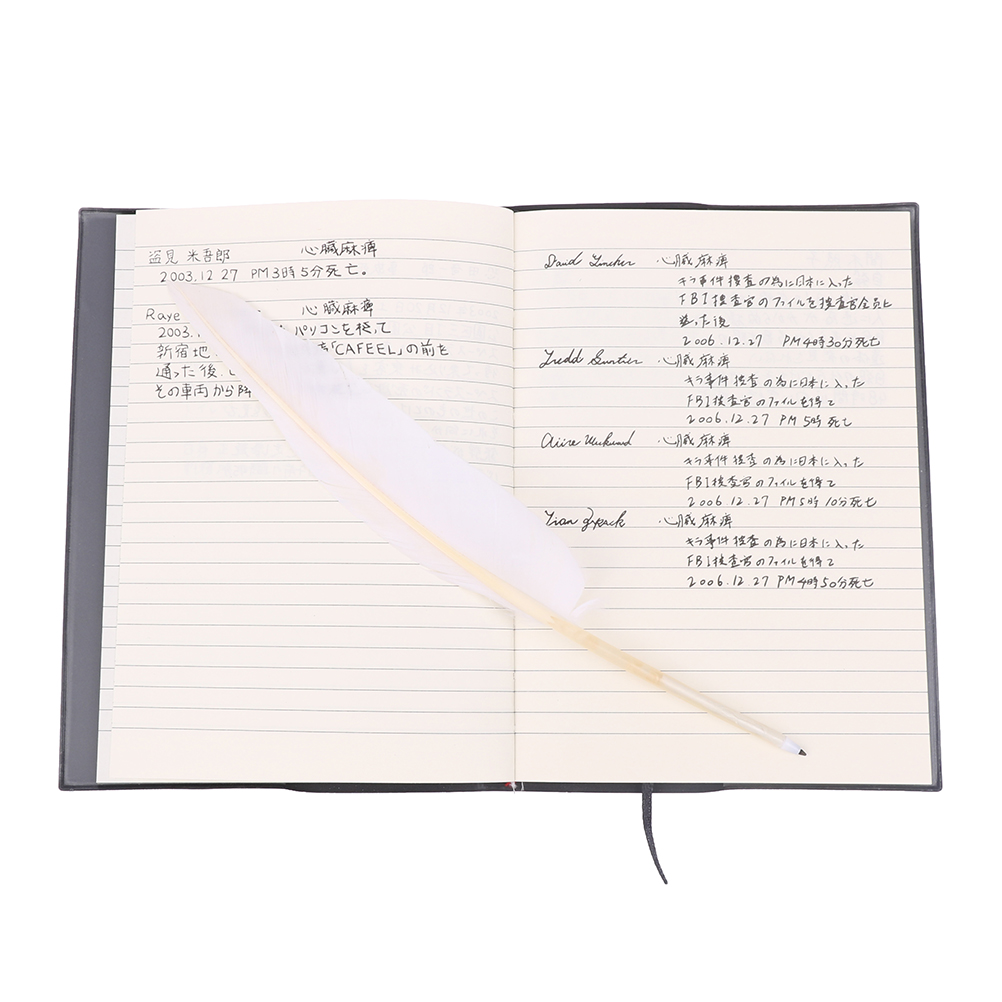 盗見 米吾郎 心臓麻痺
2003.12 27 PM3時5分死亡。
Raye 心臓麻痺
2003. パソコンを使って
新宿地 「CAFEEL」の前を
通った後、
その車両から降
David 心臓麻痺
キラ事件捜査の為に日本に入った
FBI捜査官のファイルを捜査官全員に
送った後
2006.12.27 PM4時30分死亡
Fredd Guntier 心臓麻痺
キラ事件捜査の為に日本に入った
FBI捜査官のファイルを得て
2006.12.27 PM5時死亡
心臓麻痺
キラ事件捜査の為に日本に入った
FBI捜査官のファイルを得て
2006.12.27 PM5時10分死亡
心臓麻痺
キラ事件捜査の為に日本に入った
FBI捜査官のファイルを得て
2006.12.27 PM4時50分死亡